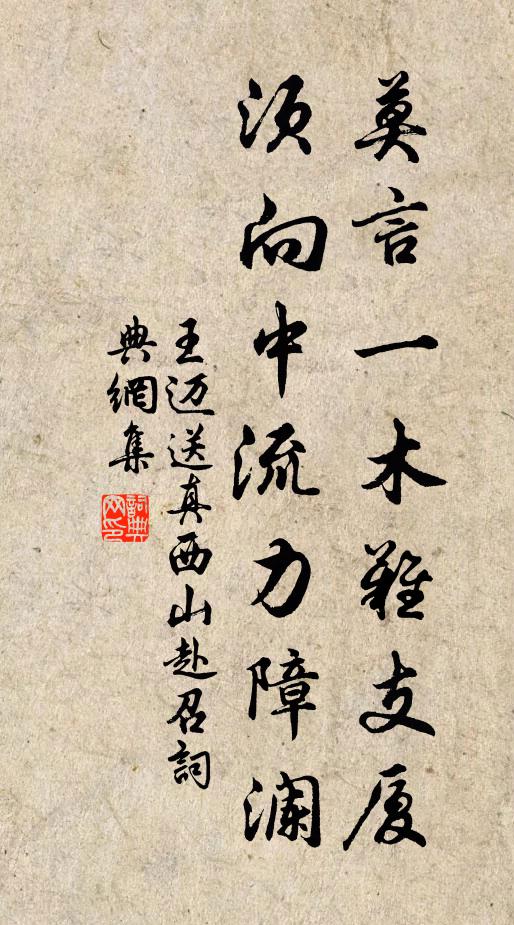 莫言一木難支厦
須向中流力障瀾
王迈送真西山赴召詞
典網集
詞典网印